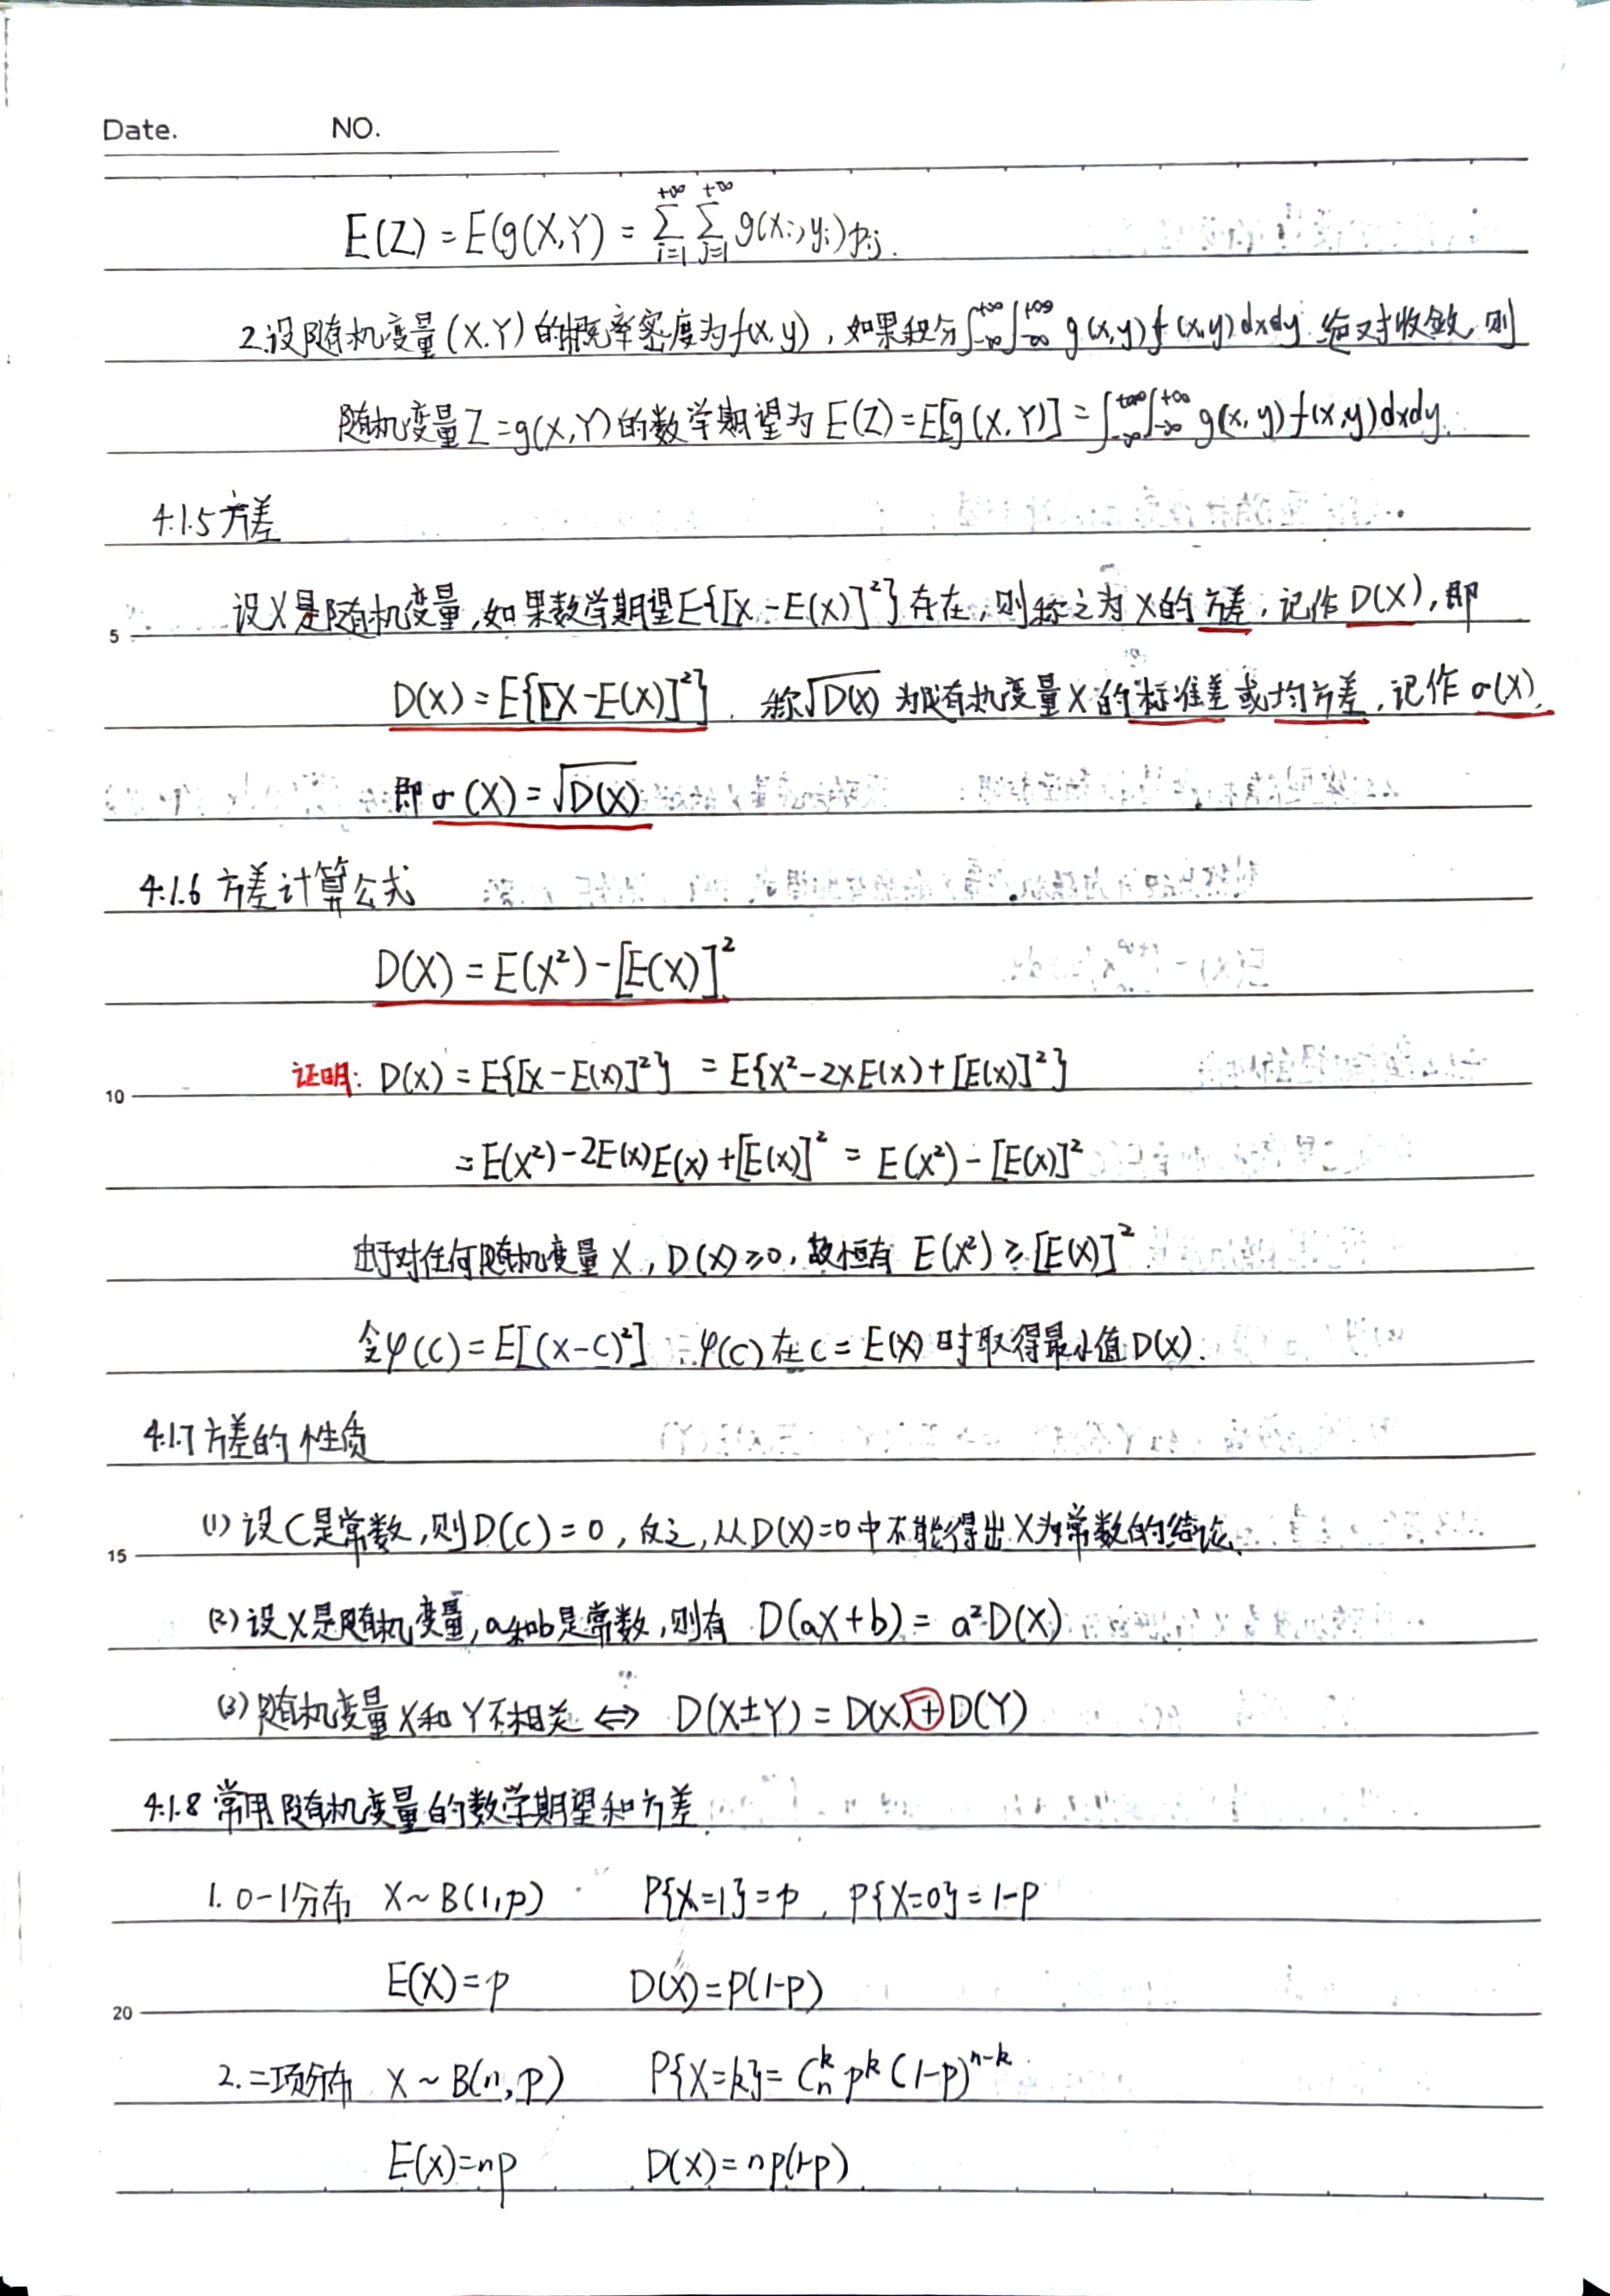 Date. NO.
E(Z) = E(g(X,Y) = \sum_{i=1}^{+∞} \sum_{j=1}^{+∞} g(x_i, y_i) p_{ij}.
2.设随机变量(X.Y)的概率密度为f(x,y), 如果积分∫_{-∞}^{+∞}∫_{-∞}^{+∞} g(x,y)f(x,y)dxdy 绝对收敛,则
随机变量Z=g(X,Y)的数学期望为 E(Z)=E[g(X,Y)] = ∫_{-∞}^{+∞}∫_{-∞}^{+∞} g(x,y)f(x,y)dxdy.
4.1.5 方差
设X是随机变量,如果数学期望E{[X-E(X)]²}存在,则称之为X的方差,记作D(X),即
5
D(X)=E{[X-E(X)]²}, 称√D(X) 为随机变量X的标准差或均方差,记作σ(X),
即σ(X)=√D(X)
4.1.6 方差计算公式
D(X) = E(X²)-[E(X)]²
证明: D(X) = E{[X-E(X)]²} = E{X²-2XE(X)+[E(X)]²}
10
=E(X²)-2E(X)E(X)+[E(X)]² = E(X²)-[E(X)]²
由于对任何随机变量X, D(X)≥0, 故恒有 E(X²)≥[E(X)]²
令φ(C)=E[(X-C)²] ∴φ(C)在C=E(X)时取得最小值D(X).
4.1.7 方差的性质
(1)设C是常数,则D(C)=0, 反之,从D(X)=0中不能得出X为常数的结论.
15
(2)设X是随机变量,a和b是常数,则有 D(aX+b)= a²D(X)
(3)随机变量X和Y不相关 ⇔ D(X±Y)=D(X)+D(Y)
4.1.8 常用随机变量的数学期望和方差
1. 0-1分布 X~B(1,p) P{X=1}=p, P{X=0}=1-p
E(X)=p D(X)=p(1-p)
20
2.二项分布 X~B(n,p) P{X=k}=C_n^k p^k (1-p)^{n-k}
E(X)=np D(X)=np(1-p)